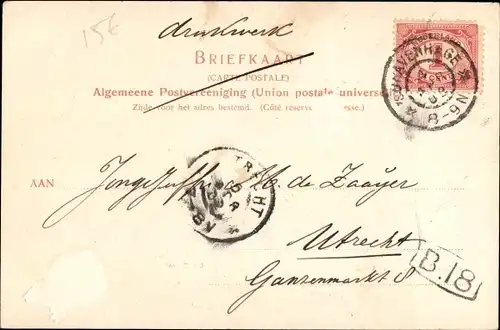 15€
drukwerk
BRIEFKAART
(CARTE POSTALE)
Algemeene Postvereeniging (Union postale universelle)
Zijde voor het adres bestemd. (Côté réservé à l'adresse.)
'S GRAVENHAGE
8-9N
UTRECHT
AAN
Jongejuffrouw M. de Zaayer
Utrecht
Ganzenmarkt 8
B.18